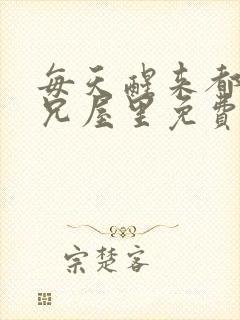 每天醒来都
兄屋里免费
宗楚客